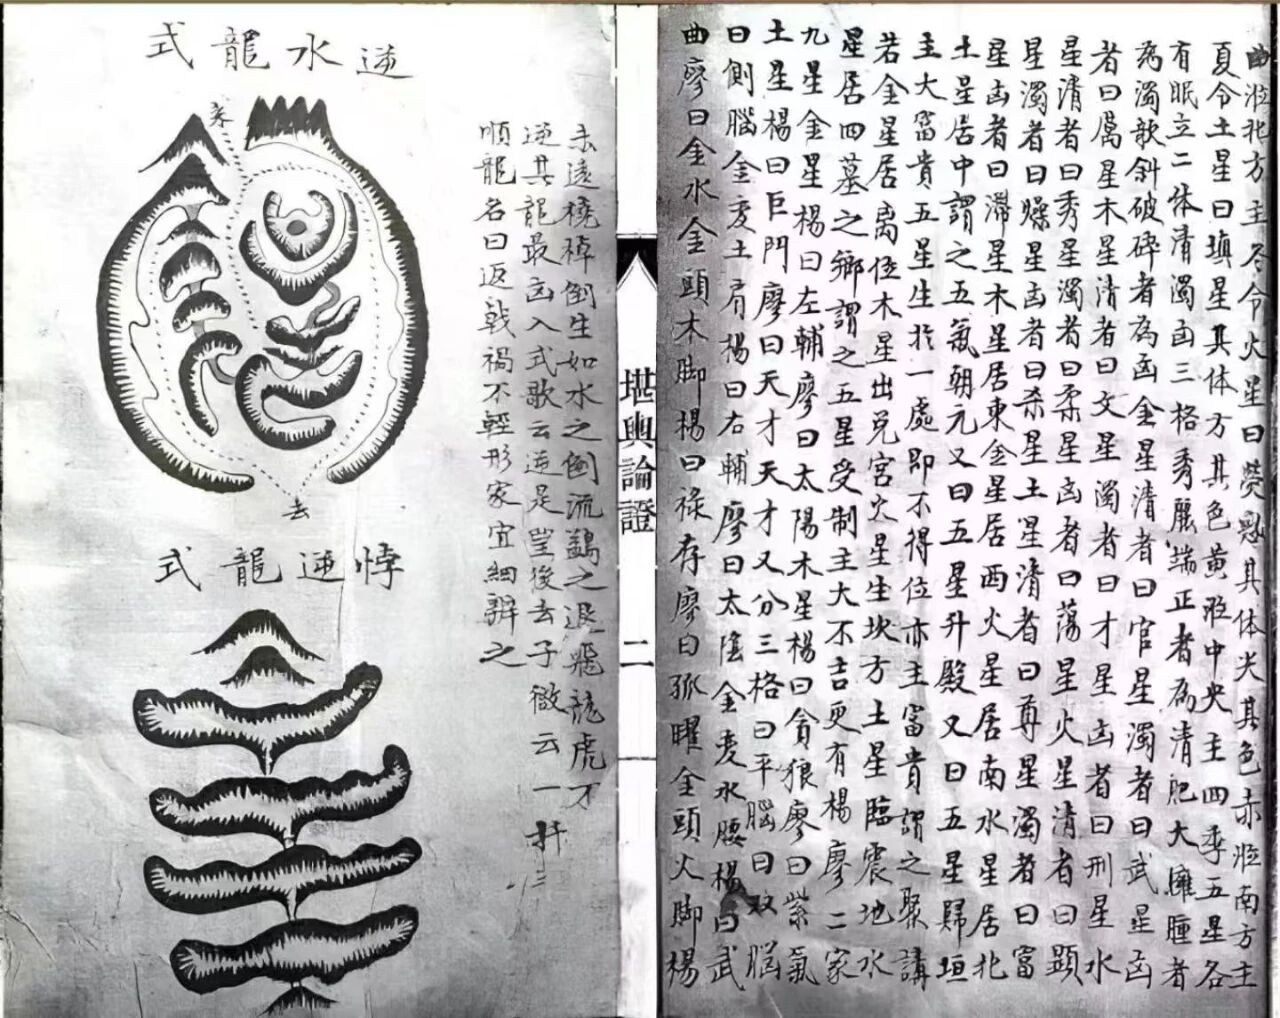 曲㳌北方主冬令火星曰熒惑其体尖其色赤㳌南方主
夏令土星曰填星其体方其色黄㳌中央主四季五星各
有眠立二体清濁凶三格秀麗端正者為清肥大臃腫者
為濁欹斜破碎者為凶金星清者曰官星濁者曰武星凶
者曰厲星木星清者曰文星濁者曰才星凶者曰刑星水
星清者曰秀星濁者曰柔星凶者曰蕩星火星清者曰顕
星濁者曰燥星凶者曰杀星土星清者曰尊星濁者曰富
星凶者曰滞星木星居東金星居西火星居南水星居北
土星居中謂之五氣朝元又曰五星升殿又曰五星歸垣
主大富貴五星生於一處即不得位亦主富貴謂之聚講
若金星居离位木星出兑宮火星生坎方土星臨震地水
星居四墓之鄉謂之五星受制主大不吉更有楊廖二家
九星金星楊曰左輔廖曰太陽木星楊曰貪狼廖曰紫氣
土星楊曰巨門廖曰天才天才又分三格曰平腦曰双腦
曰側腦金变土肩楊曰右輔廖曰太陰金变水腰楊曰武
曲廖曰金水金頭木脚楊曰祿存廖曰孤曜金頭火脚楊
堪輿論證
二
逆水龍式
来
去
去遠橈棹倒生如水之倒流鷁之退飛龍虎才
逆其龍最凶入式歌云逆是望後去子微云一
順龍名曰返戟禍不輕形家宜細辨之
悖逆龍式